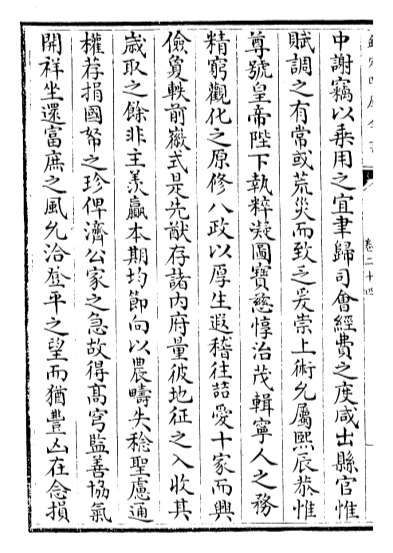 中謝竊以乗用之宜聿歸司會經費之度咸出縣官惟
賦調之有常或荒災而致乏爰崇上術允屬熙辰恭惟
尊號皇帝陛下執粹凝圖寶慈惇治茂輯寧人之務
精窮觀化之原修八政以厚生遐稽往喆愛十家而興
儉敻軼前徽式是先猷存諸内府量彼地征之入收其
歲取之餘非主羨贏本期均節向以農疇失稔聖慮通
權荐捐國帑之珍俾濟公家之急故得髙穹監善協氣
開祥坐還富庶之風允洽登平之望而猶豐凶在念損
卷二十四